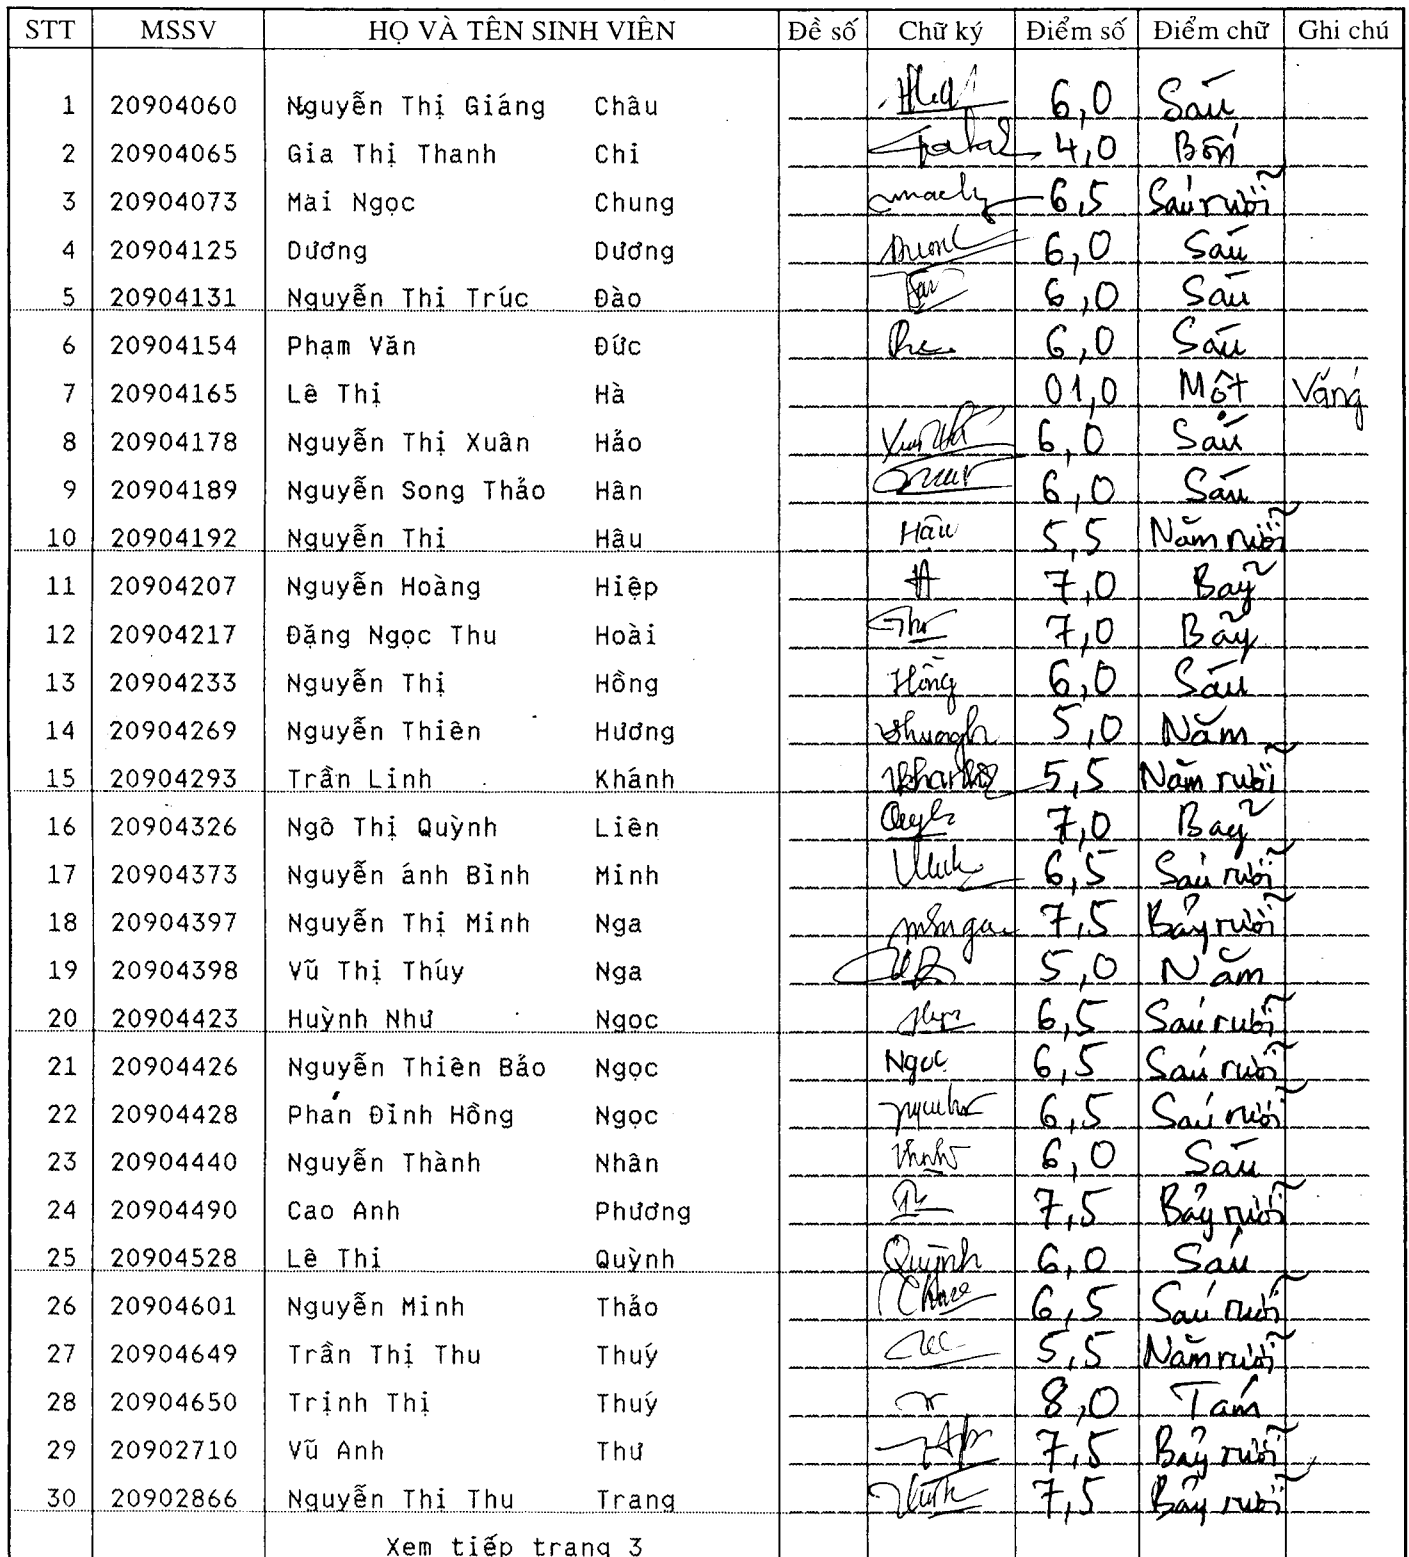 STT MSSV HỌ VÀ TÊN SINH VIÊN Đề số Chữ ký Điểm số Điểm chữ Ghi chú
1 20904060 Nguyễn Thị Giáng Châu 6,0 Sáu
2 20904065 Gia Thị Thanh Chi 4,0 Bốn
3 20904073 Mai Ngọc Chung 6,5 Sáu rưỡi
4 20904125 Dương Dương 6,0 Sáu
5 20904131 Nguyễn Thị Trúc Đào 6,0 Sáu
6 20904154 Phạm Văn Đức 6,0 Sáu
7 20904165 Lê Thị Hà 01,0 Một Vắng
8 20904178 Nguyễn Thị Xuân Hảo 6,0 Sáu
9 20904189 Nguyễn Song Thảo Hân 6,0 Sáu
10 20904192 Nguyễn Thị Hậu Hậu 5,5 Năm rưỡi
11 20904207 Nguyễn Hoàng Hiệp 7,0 Bảy
12 20904217 Đặng Ngọc Thu Hoài 7,0 Bảy
13 20904233 Nguyễn Thị Hồng Hồng 6,0 Sáu
14 20904269 Nguyễn Thiên Hương 5,0 Năm
15 20904293 Trần Linh Khánh 5,5 Năm rưỡi
16 20904326 Ngô Thị Quỳnh Liên 7,0 Bảy
17 20904373 Nguyễn ánh Bình Minh 6,5 Sáu rưỡi
18 20904397 Nguyễn Thị Minh Nga 7,5 Bảy rưỡi
19 20904398 Vũ Thị Thúy Nga 5,0 Năm
20 20904423 Huỳnh Như Ngọc 6,5 Sáu rưỡi
21 20904426 Nguyễn Thiên Bảo Ngọc Ngọc 6,5 Sáu rưỡi
22 20904428 Phan Đình Hồng Ngọc 6,5 Sáu rưỡi
23 20904440 Nguyễn Thành Nhân 6,0 Sáu
24 20904490 Cao Anh Phương 7,5 Bảy rưỡi
25 20904528 Lê Thị Quỳnh Quỳnh 6,0 Sáu
26 20904601 Nguyễn Minh Thảo 6,5 Sáu rưỡi
27 20904649 Trần Thị Thu Thuý 5,5 Năm rưỡi
28 20904650 Trịnh Thị Thuý 8,0 Tám
29 20902710 Vũ Anh Thư 7,5 Bảy rưỡi
30 20902866 Nguyễn Thị Thu Trang 7,5 Bảy rưỡi
Xem tiếp trang 3